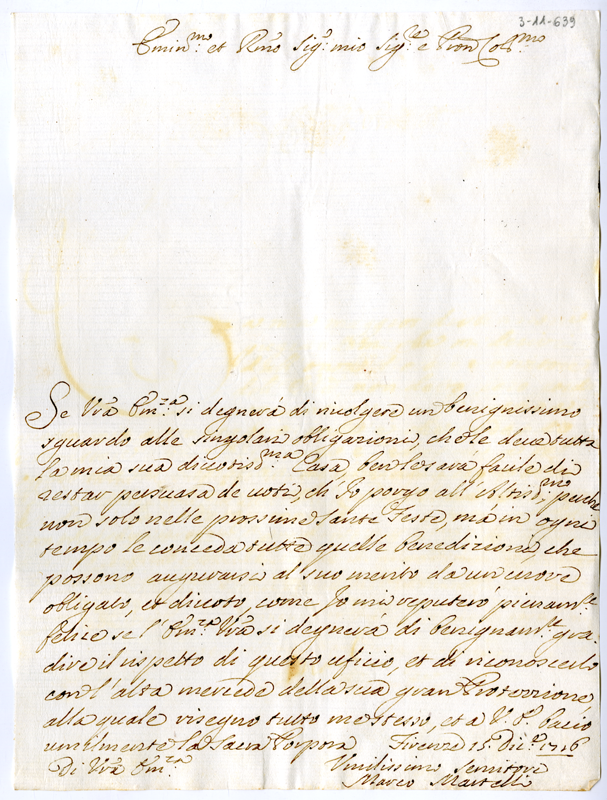 3-11-639
Emin.mo et Rmo Sig.r mio Sig.re e Pron Col.mo
Se Vrã Em.za si degnerà di rivolgere un benignissimo
sguardo alle singolari obligazioni, che le deve tutta
la mia sua divotiss.ma Casa, ben le sarà facile di
restar persuasa de voti, ch'Io porgo all'Altiss.mo perche
non solo nelle prossime Sante Feste, mà in ogni
tempo le conceda tutte quelle benedizioni, che
possono augurarsi al suo merito da un cuore
obligato, et divoto, come Io mi reputerò pienam.te
felice se l'Em.za Vrã si degnerà di benignam.te gra-
dire il rispetto di questo ufizio, et di riconoscerlo
con l'alta mercede della sua gran Protezzione
alla quale risegno tutto me stesso, et a V. E. bacio
umilmente la Sacra Porpora Firenze 15 Dic.e 1716
Di Vrã Em.za
Umilissimo Servitore
Marco Martelli